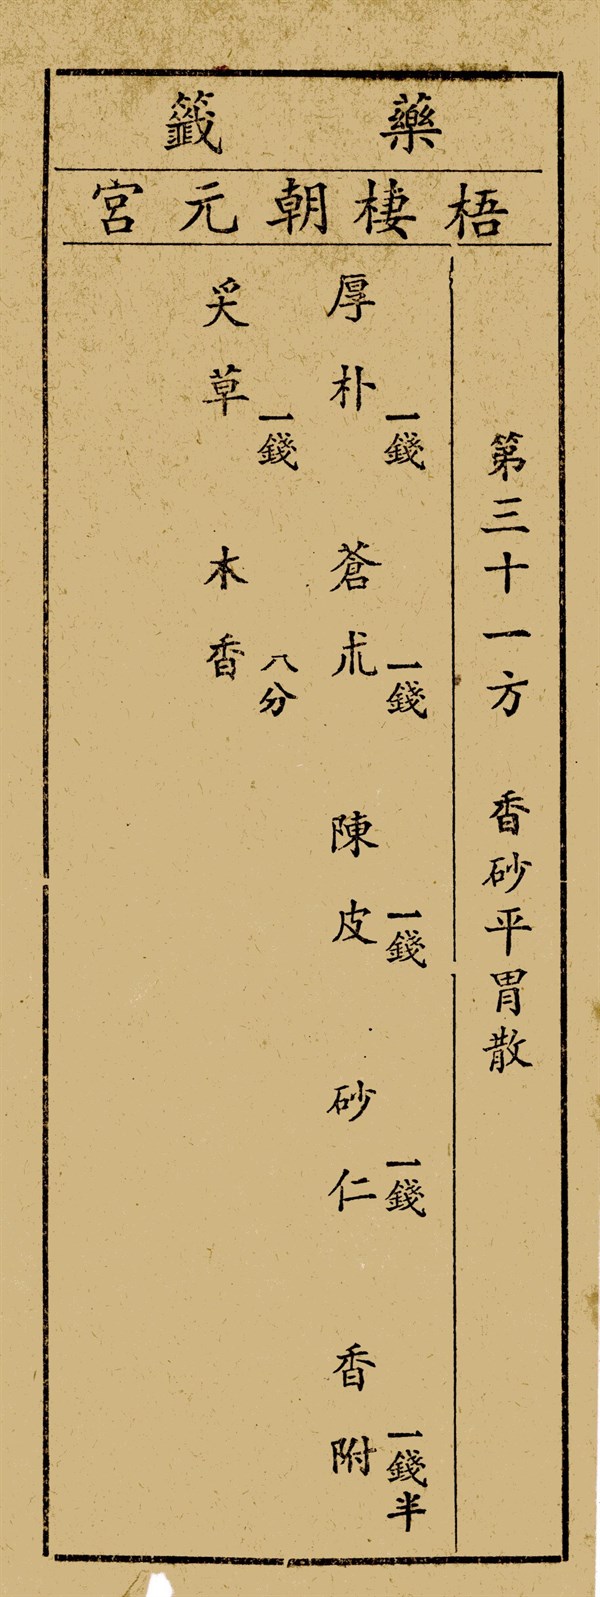 藥籤
梧棲朝元宮
第三十一方 香砂平胃散
厚朴一錢 蒼朮一錢 陳皮一錢 砂仁一錢 香附一錢半
炙草一錢 木香八分